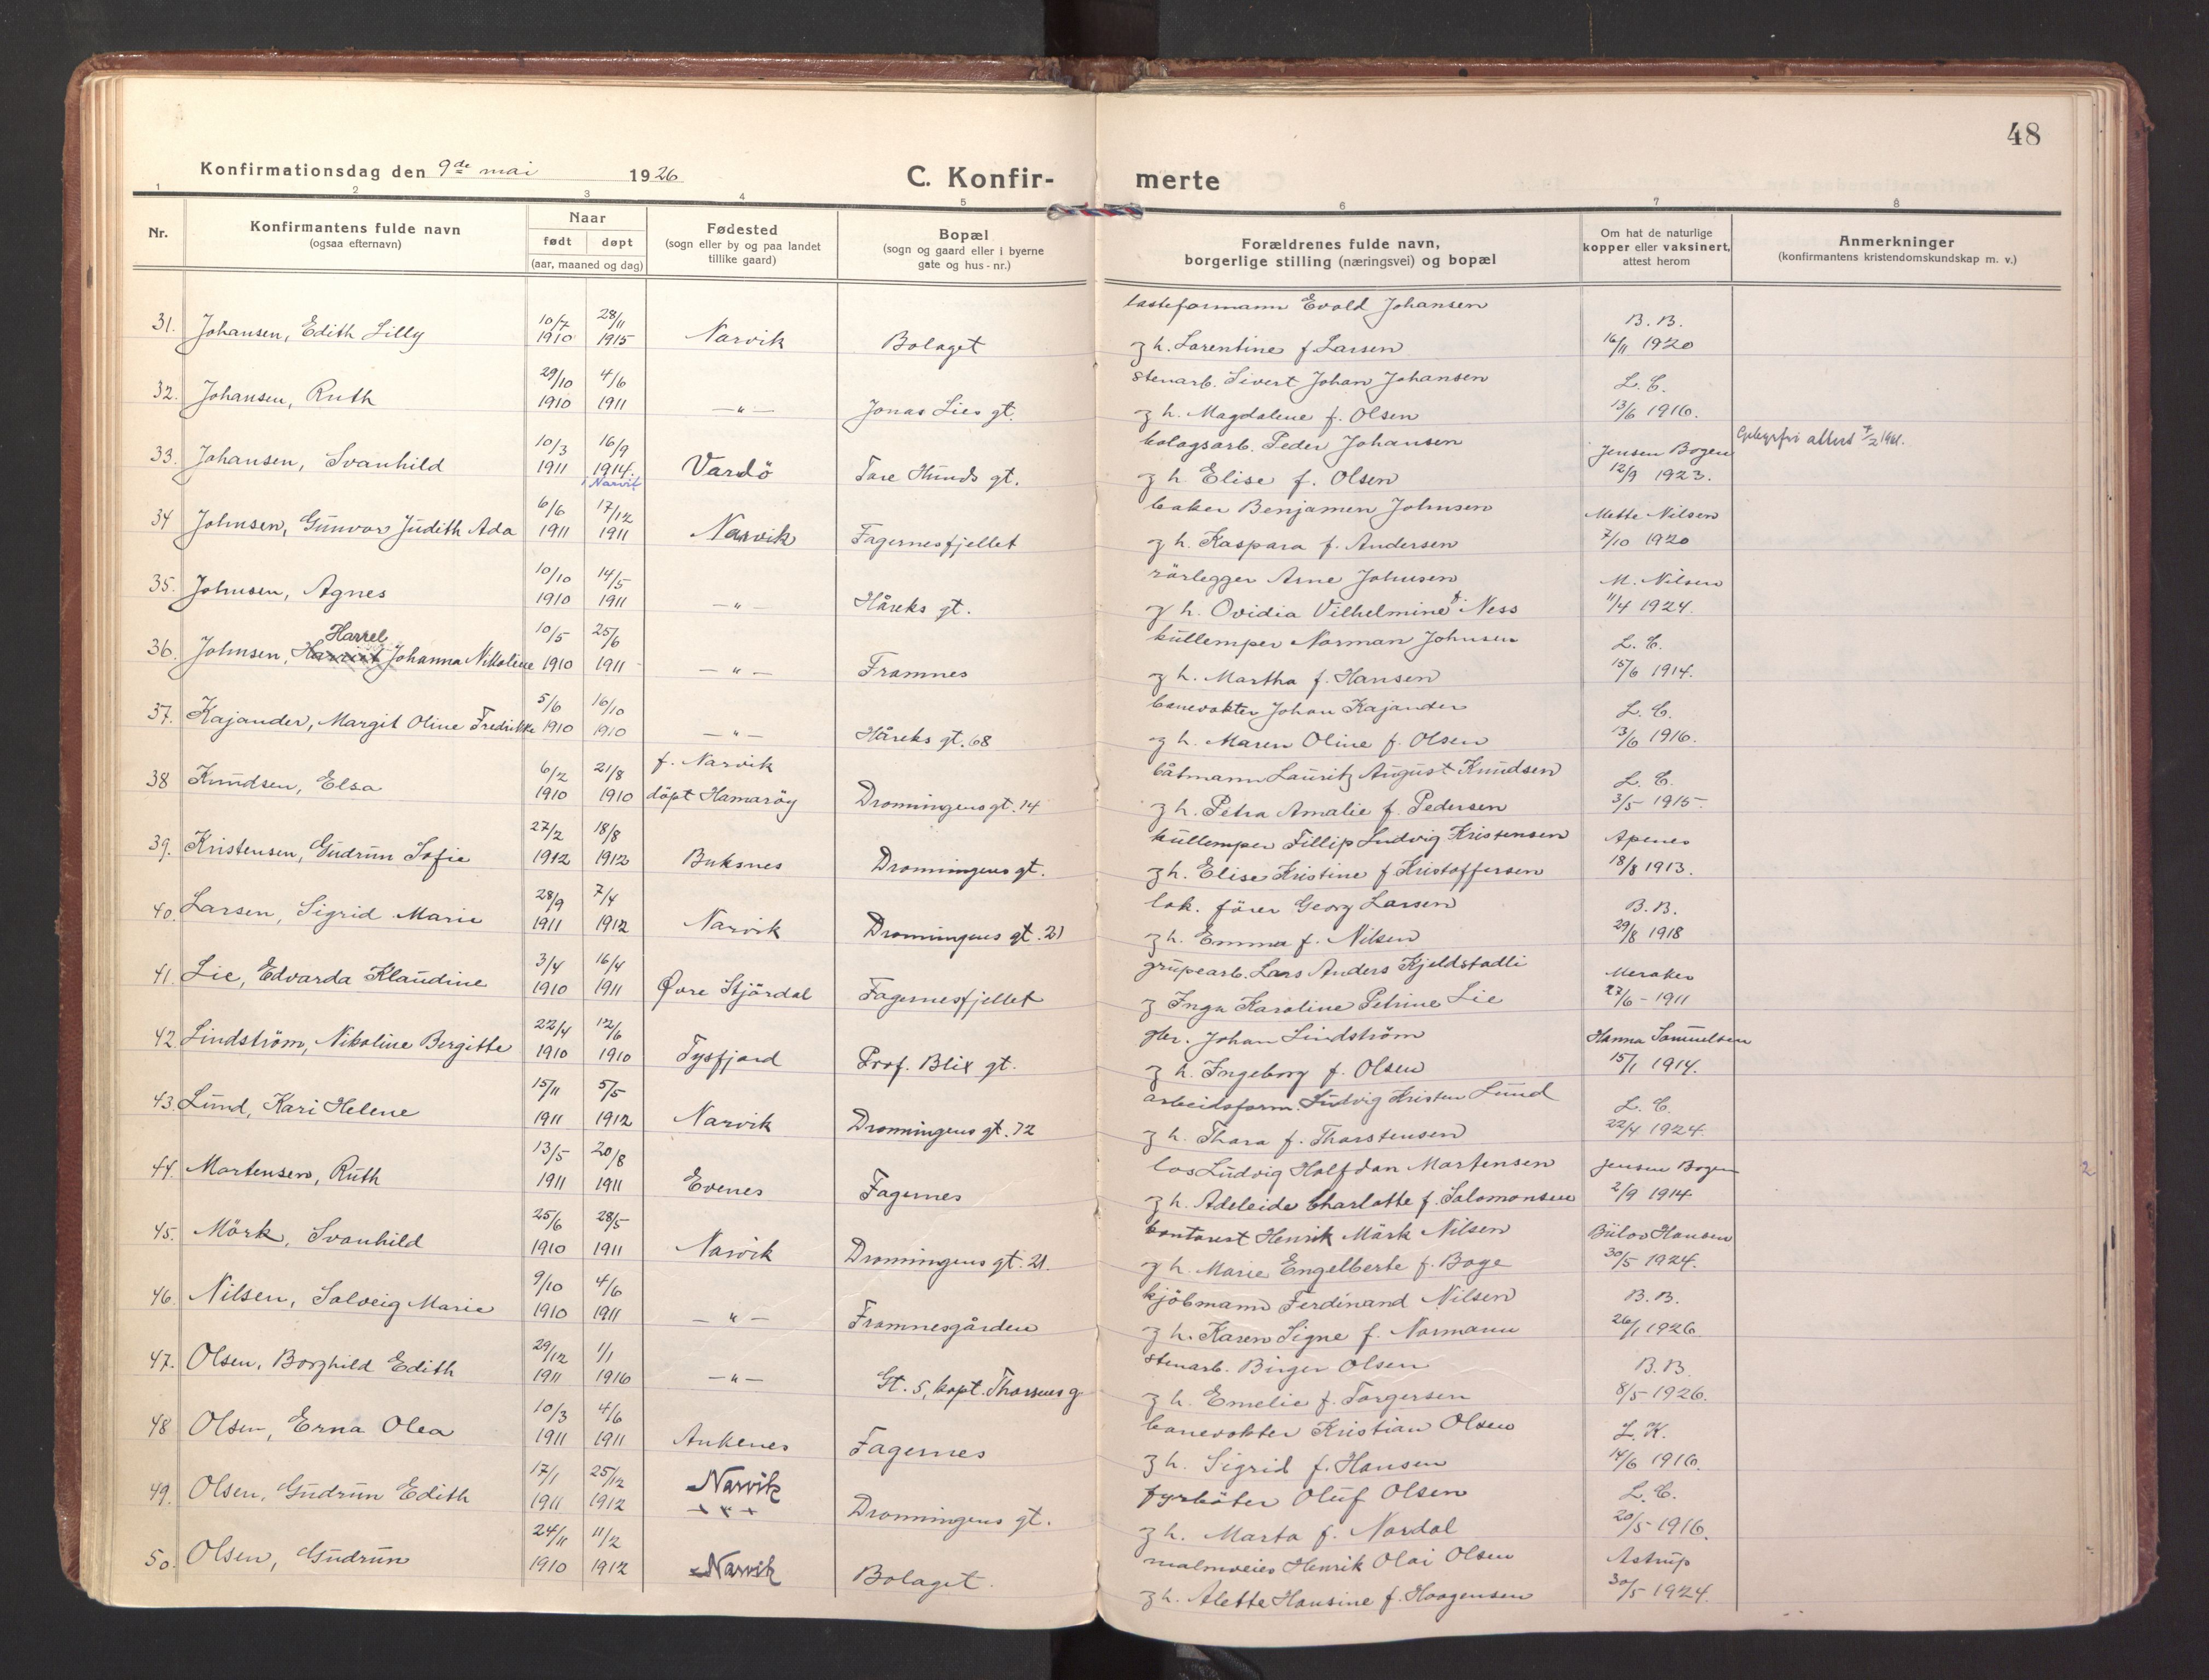 48
Konfirmationsdag den 9de mai 1926
C. Konfir-
merte
1 2 3 4 5 6 7 8
Nr.
Konfirmantens fulde navn
(ogsaa efternavn)
Naar
født døpt
(aar, maaned og dag)
Fødested
(sogn eller by og paa landet
tillike gaard)
Bopæl
(sogn og gaard eller i byerne
gate og hus-nr.)
Forældrenes fulde navn,
borgerlige stilling (næringsvei) og bopæl
Om hat de naturlige
kopper eller vaksinert,
attest herom
Anmerkninger
(konfirmantens kristendomskundskap m. v.)
10/7 28/11 lasteformann Evald Johansen B. B.
31. Johansen, Edith Lilly 1910 1915 Narvik Bolaget g h. Lorentine f Larsen 16/11 1920
29/10 4/6 stenarb. Sivert Johan Johansen L. C.
32. Johansen, Ruth 1910 1911 —"— Jonas Lies gt. g h. Magdalene f. Olsen 13/6 1916.
10/3 16/9 bolagsarb. Peder Johansen Jensen Bogen attest 7/2 1961.
33. Johansen, Svanhild 1911 1914. Vardö Tore Hunds gt. g h. Elise f. Olsen 12/9 1923.
Narvik
6/6 17/12 baker Benjamen Johnsen Mette Nilsen
34 Johnsen, Gunvor Judith Ada 1911 1911 Narvik Fagernesfjellet g h. Kaspara f. Andersen 7/10 1920
10/10 14/5 rörlegger Arne Johnsen M. Nilsen
35. Johnsen, Agnes 1910 1911 —"— Håreks gt. g h. Ovidia Vilhelmine f. Ness 11/4 1924.
Harrel 10/5 25/6 kullemper Norman Johnsen L. C.
36. Johnsen, Harriet Johanna Nikoline 1910 1911 —"— Framnes g h. Martha f. Hansen 15/6 1914.
5/6 16/10 banevokter Johan Kajander L. C.
37. Kajander, Margit Oline Fredrikke 1910 1910 —"— Håreks gt. 68 g h. Maren Oline f. Olsen 13/6 1916.
6/2 21/8 f. Narvik båtmann Lauritz August Knudsen L. C.
38 Knudsen, Elsa 1910 1910 döpt Hamaröy Dronningens gt. 14 g h. Petra Amalie f. Pedersen 3/5 1915.
27/2 18/8 kullemper Fillip Ludvig Kristensen Apenes
39. Kristensen, Gudrun Sofie 1912 1912 Buksnes Dronningens gt. g h. Elise Kristine f Kristoffersen 18/8 1913.
28/9 7/4 lok. förer Georg Larsen B. B.
40. Larsen, Sigrid Marie 1911 1912 Narvik Dronningens gt. 21 g h. Emma f. Nilsen 29/8 1918
3/4 16/4 grupearb. Lars Anders Kjeldstadli Meraker
41. Lie, Edvarda Klaudine 1910 1911 Øvre Stjördal Fagernesfjellet g Inga Karoline Petrine Lie 27/6 - 1911
22/4 12/6 Johan Lindström Hanna Samuelsen
42. Lindström, Nikoline Bergitte 1910 1910 Tysfjord Prof. Blix gt. g h. Ingeborg f. Olsen 15/1 1914.
15/11 5/5 arbeidsform. Ludvig Kristen Lund L. C.
43. Lund, Kari Helene 1911 1912 Narvik Dronningens gt. 72 g h. Thora f. Thorstensen 22/4 1924.
13/5 20/8 los Ludvig Halfdan Martensen Jensen Bogen 2
44. Martensen, Ruth 1911 1911 Evenes Fagernes g h. Adeleide Charlotte f. Salomonsen 2/9 1914
25/6 28/5 kontorist Henrik Mörk Nilsen Bülov Hansen
45. Mörk, Svanhild 1910 1911 Narvik Dronningens gt. 21. g h. Marie Engelberte f. Boge 30/5 1924.
9/10 4/6 kjöbmann Ferdinand Nilsen B. B.
46. Nilsen, Solveig Marie 1910 1911 —"— Framnesgården g h. Karen Signe f. Normann 26/1 1926.
29/12 1/1 stenarb. Birger Olsen B. B.
47. Olsen, Borghild Edith 1911 1916 —"— Gt. 5, kapt. Thorsens g g h. Emelie f. Torgersen 8/5 1926.
10/3 4/6 banevokter Kristian Olsen L. K.
48 Olsen, Erna Olea 1911 1911 Ankenes Fagernes g h. Sigrid f. Hansen 14/6 1916.
17/1 25/12 Narvik fyrböter Oluf Olsen L. C.
49. Olsen, Gudrun Edith 1911 1912 —"— Dronningens gt. g h. Marta f. Nordal 20/5 1916.
24/11 11/2 malmveier Henrik Olai Olsen Astrup
50. Olsen, Gudrun 1910 1912 Narvik Bolaget. g h. Alette Hansine f. Haagensen 30/5 1924.